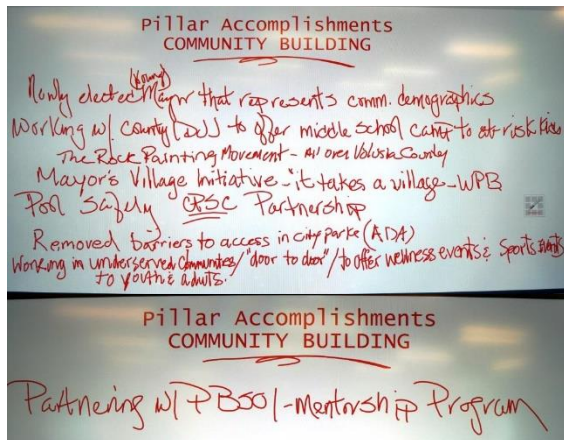 Pillar Accomplishments
COMMUNITY BUILDING
(Young)
Newly elected Mayor that represents comm. demographics
Working w/ County to offer middle school camp to at-risk kids
The Rock Painting Movement - All over Volusia County
Mayor's Village Initiative - "it takes a village - WPB
Pool Safely CPSC Partnership
Removed barriers to access in city parks (ADA)
Working in underserved communities/"door to door"/to offer wellness events & sports events
to youth & adults.
Pillar Accomplishments
COMMUNITY BUILDING
Partnering w/ PBSO/-mentorship Program